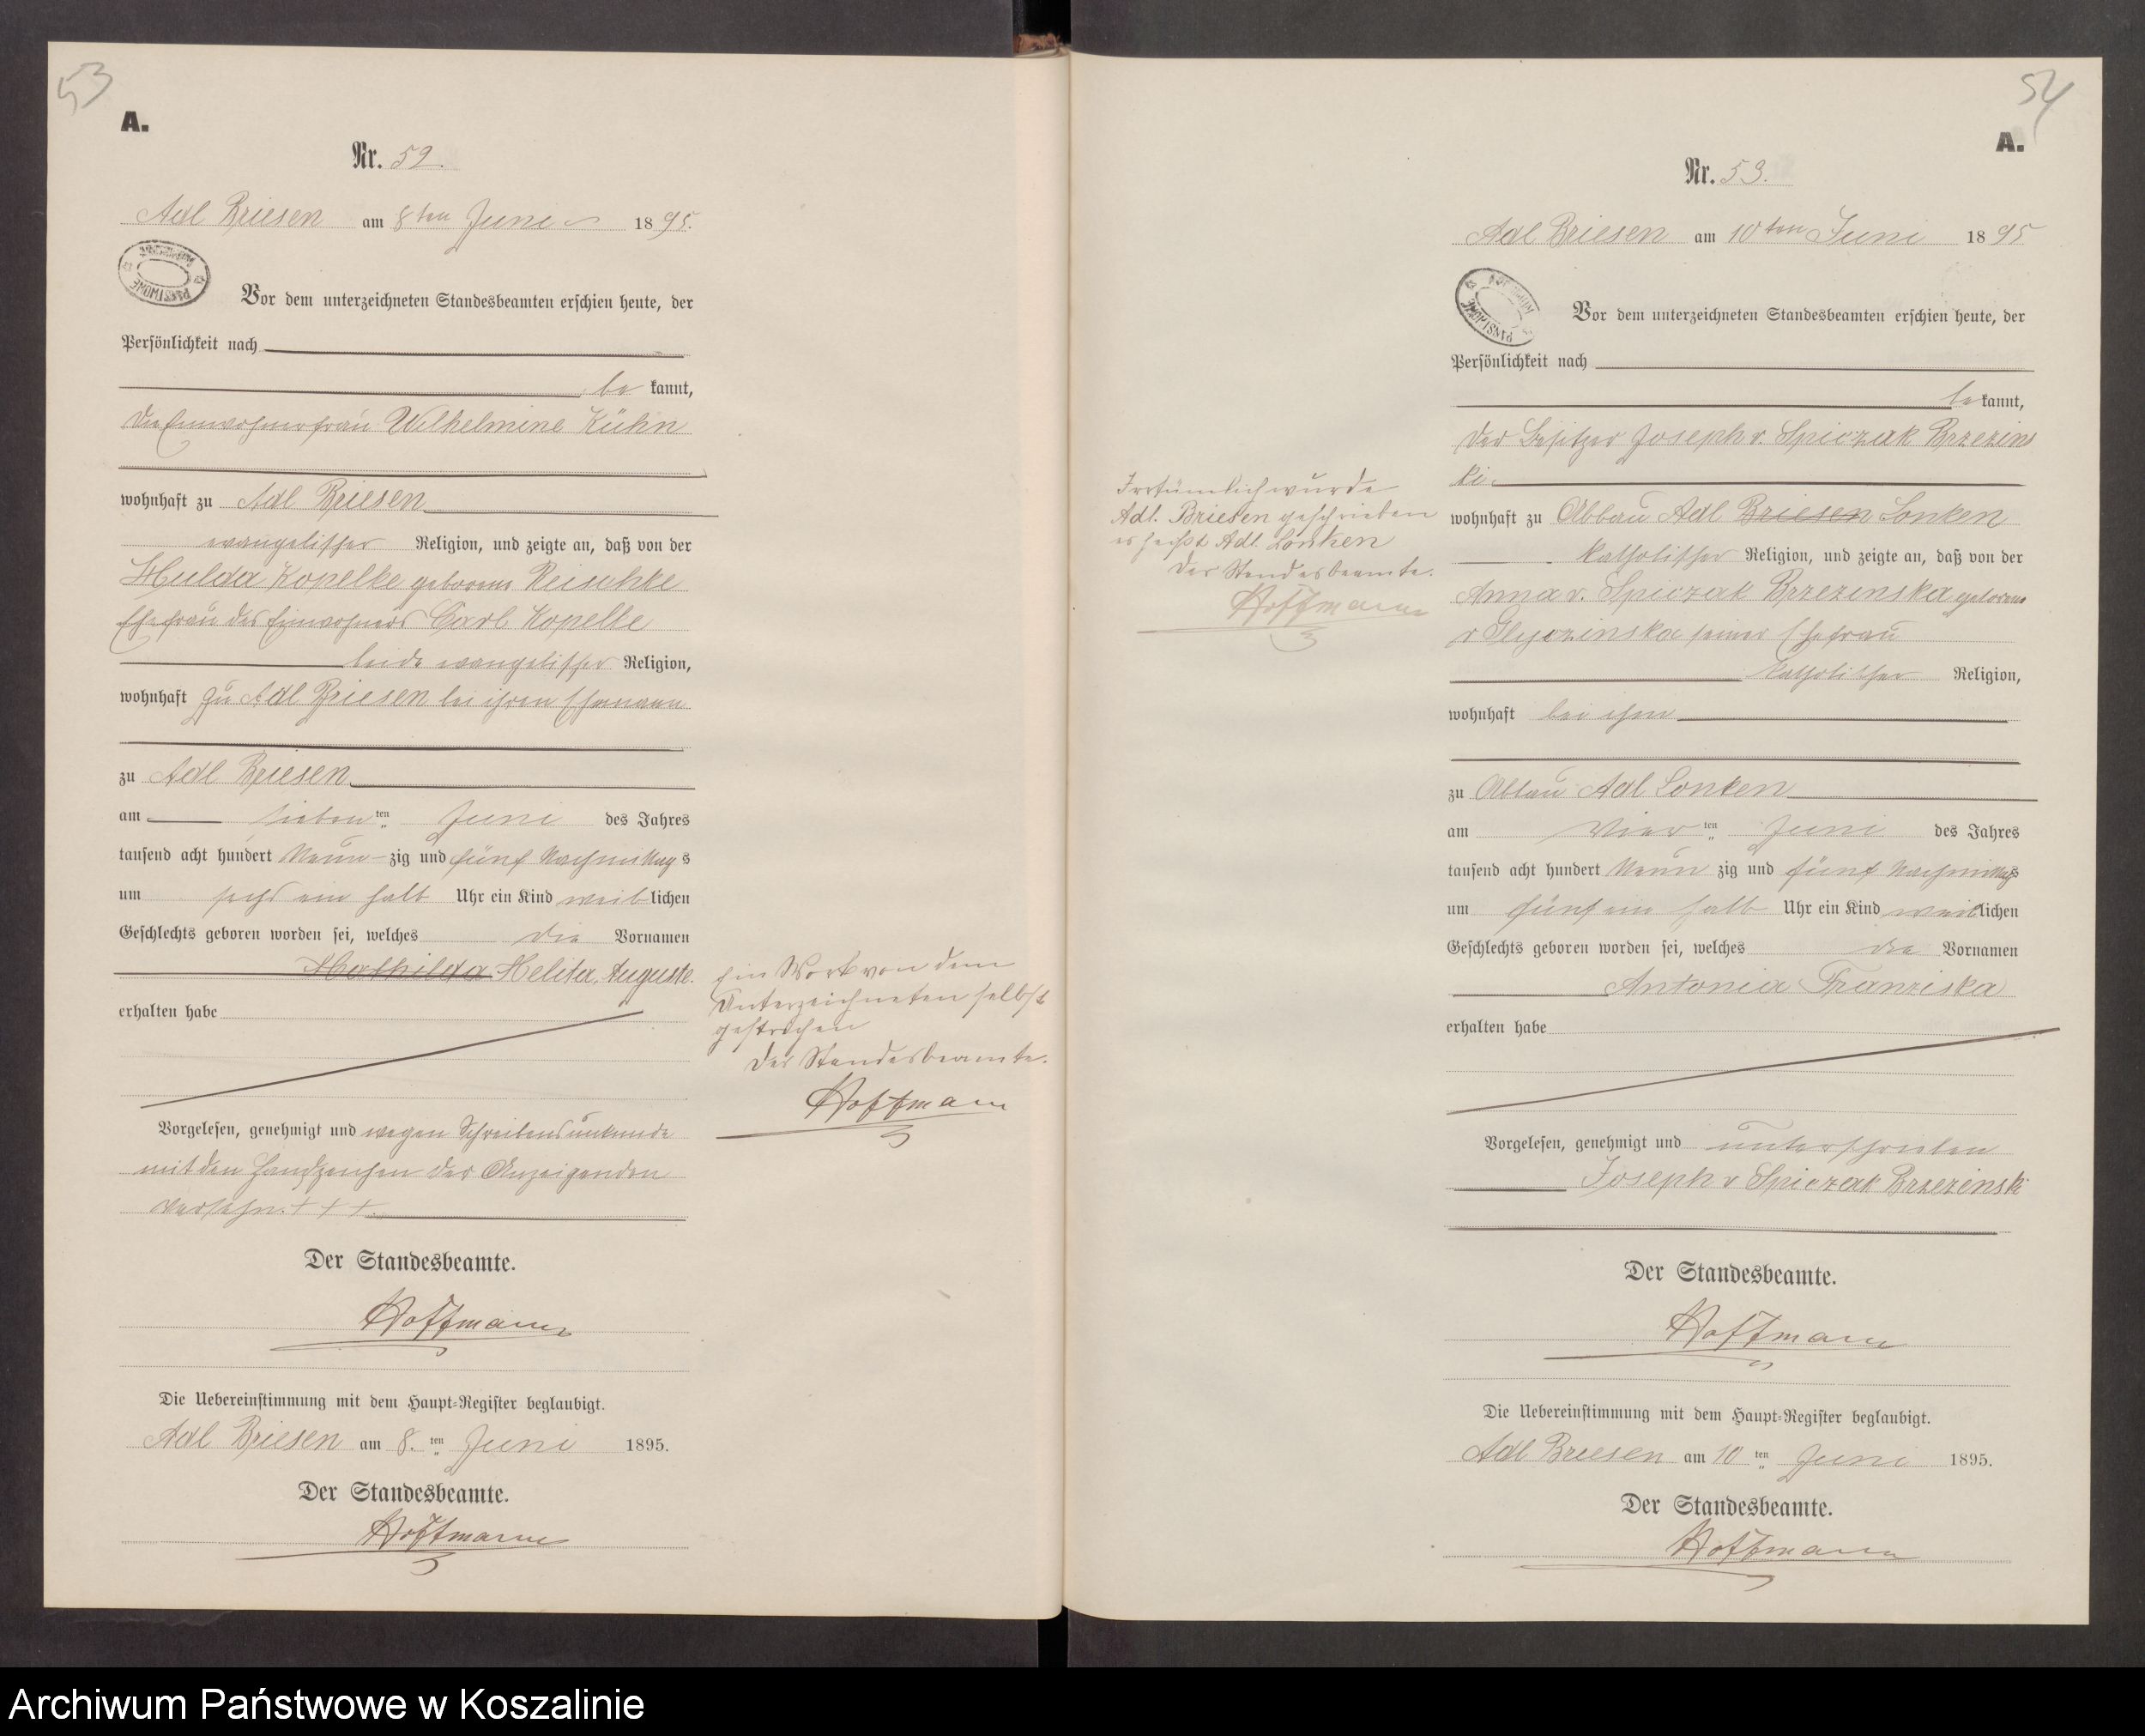 53
A.
Nr. 52.
Adl Briesen am 8ten Juni 1895.
Vor dem unterzeichneten Standesbeamten erschien heute, der
Persönlichkeit nach
be kannt,
die Einwohnerfrau Wilhelmine Kühn
wohnhaft zu Adl Briesen
evangelischer Religion, und zeigte an, daß von der
Hulda Kopelke geborene Reischke
Ehefrau des Einwohners Carl Kopelke
beide evangelischer Religion,
wohnhaft zu Adl Briesen bei ihren Ehemann
zu Adl Briesen
am sieben ten Juni des Jahres
tausend acht hundert Neun zig und fünf Nachmittag s
um sechs ein halb Uhr ein Kind weib lichen
Geschlechts geboren worden sei, welches die Vornamen
Mathilda Melita Auguste.
erhalten habe
Ein Wort von dem
Unterzeichneten selbst
gestrichen
Der Standesbeamte.
Hoffmann
Vorgelesen, genehmigt und wegen Schreibensunkunde
mit den Handzeichen der Anzeigenden
versehn. + + +.
Der Standesbeamte.
Hoffmann
Die Uebereinstimmung mit dem Haupt-Register beglaubigt.
Adl Briesen am 8. ten Juni 1895.
Der Standesbeamte.
Hoffmann
54
A.
Nr. 53.
Adl Briesen am 10ten Juni 1895
Vor dem unterzeichneten Standesbeamten erschien heute, der
Persönlichkeit nach
be kannt,
der Besitzer Joseph v. Spiczak Brzezins
ki.
wohnhaft zu Abbau Adl Briesen Lonken
katholischer Religion, und zeigte an, daß von der
Anna v. Spiczak Brzezinska geborene
v Glyszinska seiner Ehefrau
katholischer Religion,
wohnhaft bei ihm
zu Abbau Adl Lonken
am Vier ten Juni des Jahres
tausend acht hundert Neun zig und fünf Nachmittags
um fünf ein halb Uhr ein Kind weiblichen
Geschlechts geboren worden sei, welches die Vornamen
Antonia Franziska
erhalten habe
Irrtümlich wurde
Adl. Briesen geschrieben
es heißt Adl. Lonken
Der Standesbeamte.
Hoffmann
Vorgelesen, genehmigt und unterschrieben
Joseph v Spiczak Brzezinski
Der Standesbeamte.
Hoffmann
Die Uebereinstimmung mit dem Haupt-Register beglaubigt.
Adl Briesen am 10 ten Juni 1895.
Der Standesbeamte.
Hoffmann
Archiwum Państwowe w Koszalinie